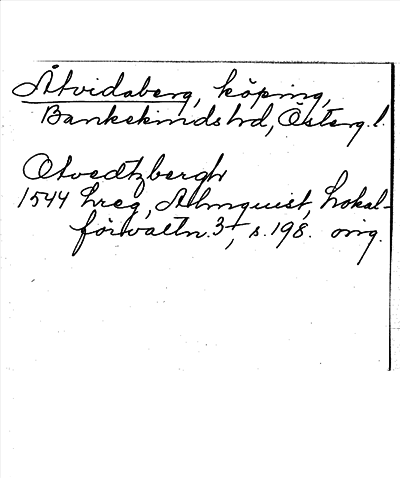 Åtvidaberg, köping,
Bankekinds hd, Österg. l.
Otvedtzbergh
1544 hreg, Almquist, Lokal-
förvaltn. 3, s. 198. orig.